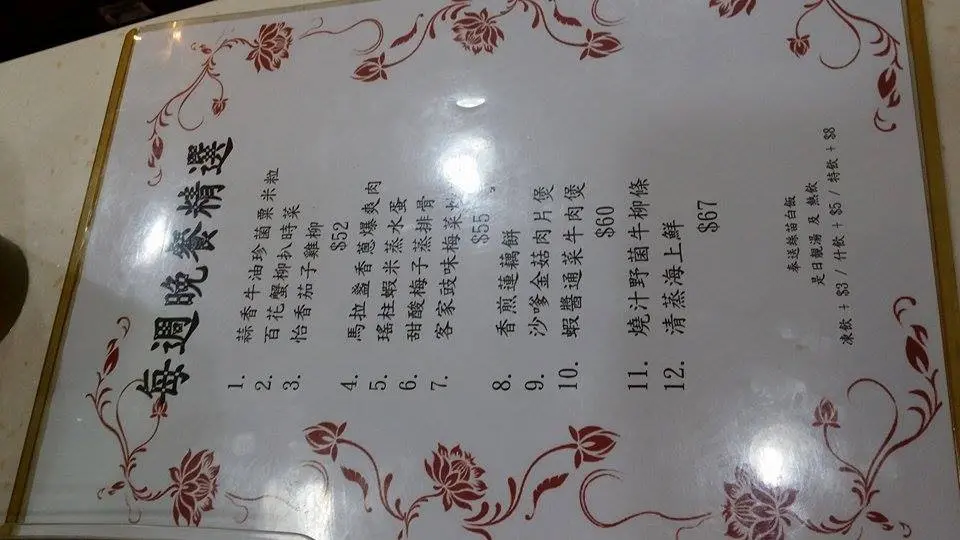 每週晚餐精選
1. 蒜香牛油珍菌粟米粒
2. 百花蟹柳扒時菜
3. 怡香茄子雞柳
$52
4. 馬拉盞香蔥爆爽肉
5. 瑤柱蝦米蒸水蛋
6. 甜酸梅子蒸排骨
7. 客家豉味梅菜
$55
8. 香煎蓮藕餅
9. 沙嗲金菇肉片煲
10. 蝦醬通菜牛肉煲
$60
11. 燒汁野菌牛柳條
12. 清蒸海上鮮
$67
奉送絲苗白飯
是日靚湯 及 熱飲
凍飲 + $3 / 什飲 + $5 / 特飲 + $8